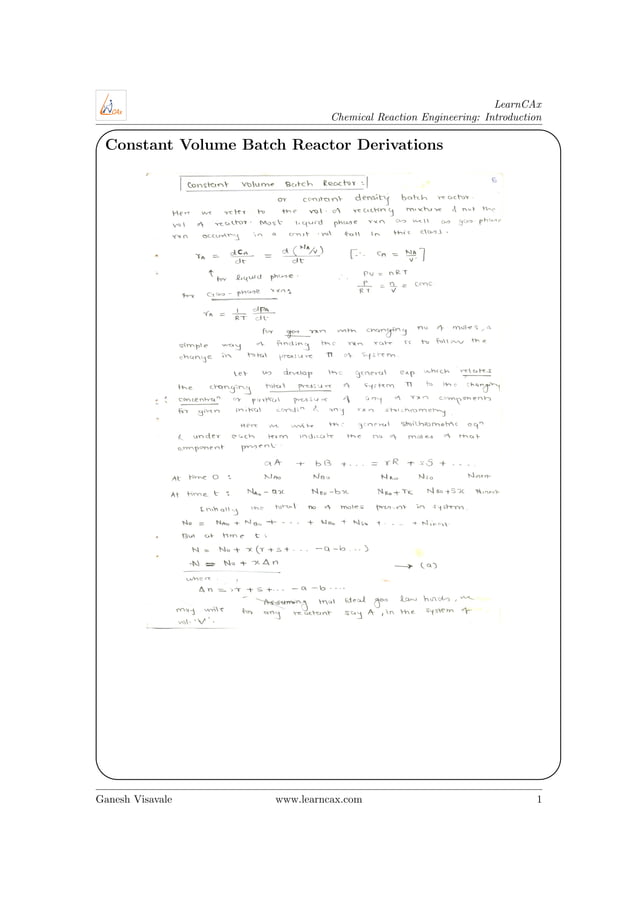 CAx
LearnCAx
Chemical Reaction Engineering: Introduction
Constant Volume Batch Reactor Derivations
Constant Volume Batch Reactor:
or constant density batch reactor.
Here we refer to the vol. of reacting mixture & not the
vol of reactor. Most liquid phase rxn as well as gas phase
rxn occuring in a const. vol fall in this class.
rA = dCA/dt = d(NA/V)/dt [∵ CA = NA/V]
↑ for liquid phase. ∴ PV = nRT
for Gas-phase rxns P/RT = n/V = conc
rA = 1/RT dpA/dt
for gas rxn with changing no of moles, a
simple way of finding the rxn rate is to follow the
change in total pressure π of system
Let us develop the general exp which relates
the changing total pressure of system π to the changing
concentraⁿ or partial pressure of any of rxn components
for given initial condiⁿ & any rxn stoichiometry
Here we write the general stoichiometric eqⁿ
& under each term indicate the no of moles of that
component present.
aA + bB + ... = rR + sS + ....
At time 0 : NAo NBo NRo NSo Ninert
At time t : NAo - ax NBo - bx NRo + rx NSo + sx Ninert
Initially the total no of moles present in system.
No = NAo + NBo + ... + NRo + NSo + ... + Ninert
But at time t :
N = No + x(r+s+... -a-b...)
N = No + xΔn → (a)
where
Δn = r + s + ... - a - b ....
Assuming that ideal gas law holds, we
may write for any reactant say A, in the system of
vol. 'V'.
Ganesh Visavale www.learncax.com 1